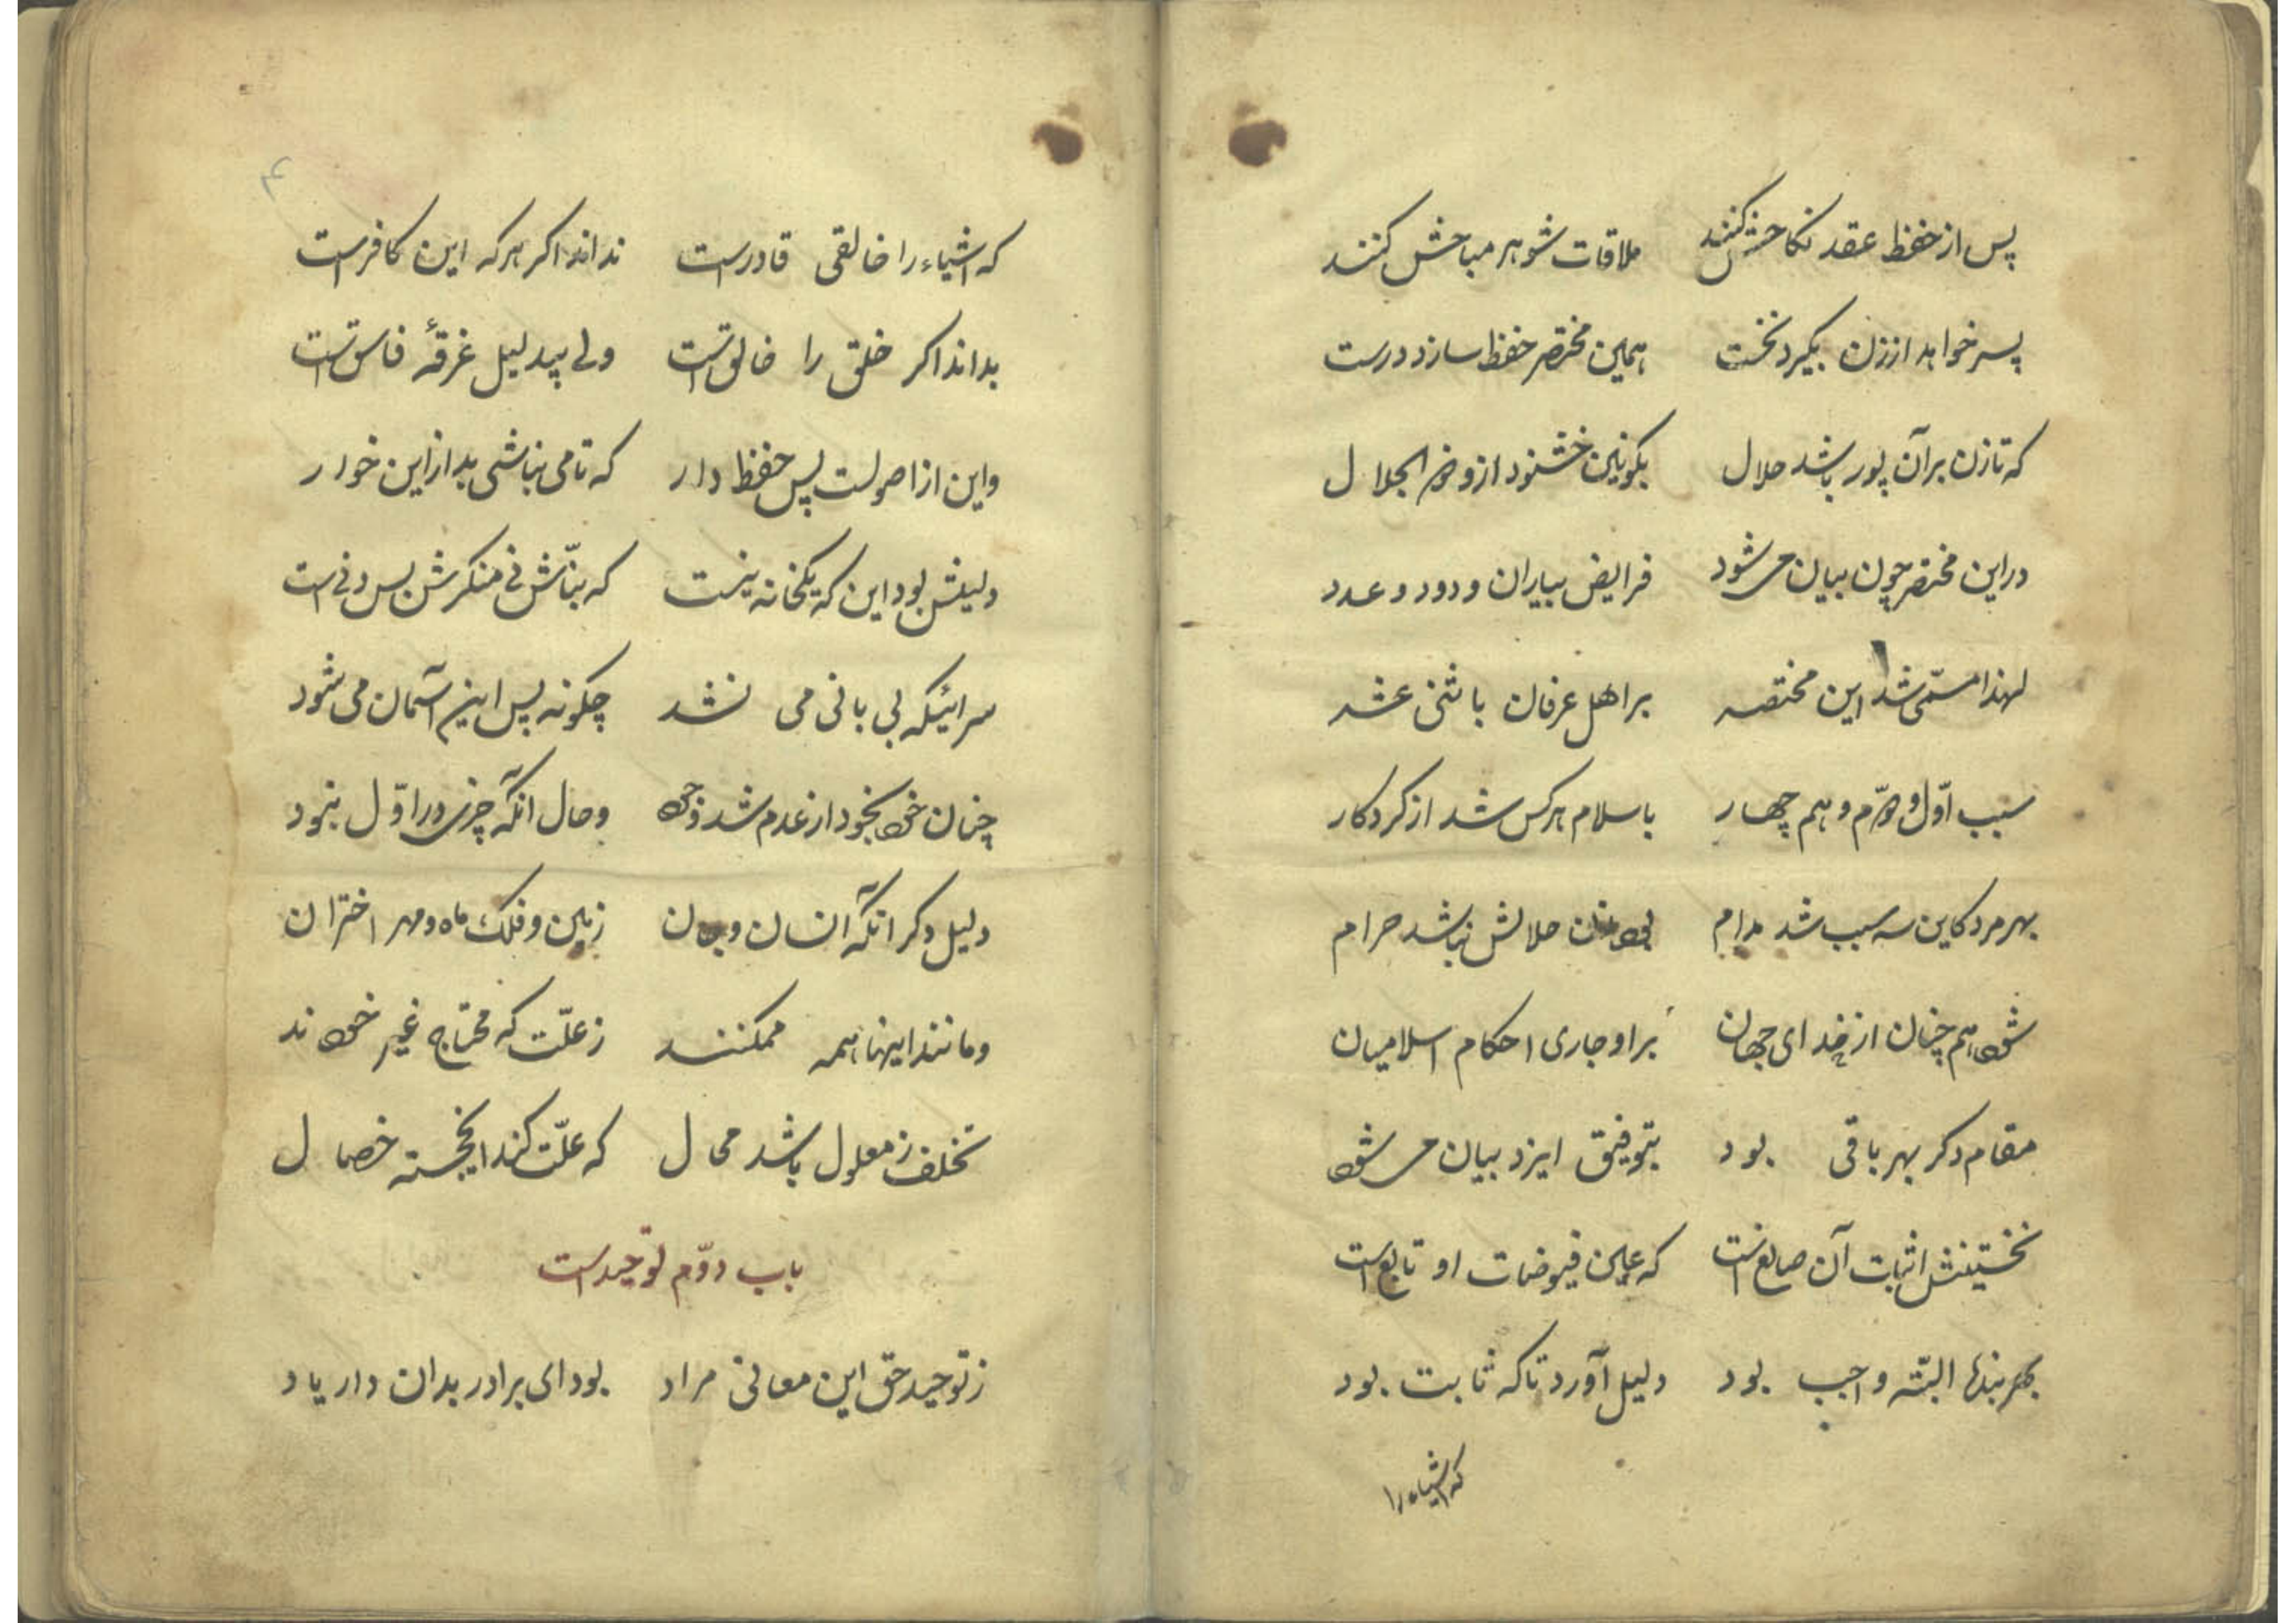 پس از حفظ عقد نکاحش کنند ملاقات شوهر مباحش کنند
پسر خواهد ار زن بگیرد نخست همین مختصر حفظ سازد درست
که تا زن بر آن پور باشد حلال بکونین خشنود ازو ذو الجلال
در این مختصر چون بیان می شود فرایض بیاران و دود و عدد
لهذا مسمّی شد این مختصر بر اهل عرفان باثنی عشر
سبب اوّل و دوّم و هم چهار باسلام هر کس شد از کردکار
بهر مرد کاین سه سبب شد مدام حلالش نباشد حرام
شود هم چنان از خدای جهان بر او جاری احکام اسلامیان
مقام دکر بهر باقی بود بتوفیق ایزد بیان می شود
نخستینش اثبات آن صانع است که عین فیوضات او تابع است
بهر بنده البتّه واجب بود دلیل آورد تا که ثابت بود
که اشیاء را
۴
که اشیاء را خالقی قادرست نداند اکر هر که این کافرست
بداند اکر خلق را خالق است ولی بیدلیل غرقهٔ فاسق است
و این از اصولست پس حفظ دار که تا می نباشی بد از این خوار
دلیلش بود این که یکخانه نیست که بنّاش نی منکرش بس دنی است
سرائیکه بی بانی می نشد چکونه پس این آسمان می شود
چنان خود بخود از عدم شد وجود و حال آنکه چیزی در اوّل نبود
دلیل دکر آنکه انسان و جان زمین و فلک ماه و مهر اختران
و مانند اینها همه ممکنند ز علّت که محتاج غیر خودند
تخلف ز معلول باشد محال که علّت کند ای خجسته خصال
باب دوّم توحید است
ز توحید حق این معانی مراد بود ای برادر بدان دار یاد